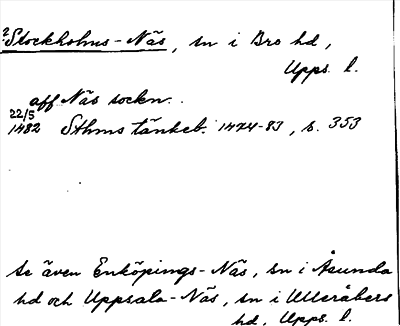 ?Stockholms-Näs, sn i Bro hd,
Upps. l.
aff Näs sockn.
22/5
1482 Sthms tänkeb. 1474-83, s. 353
Se även Enköpings-Näs, sn i Åsunda
hd och Uppsala-Näs, sn i Ulleråkers
hd, Upps. l.